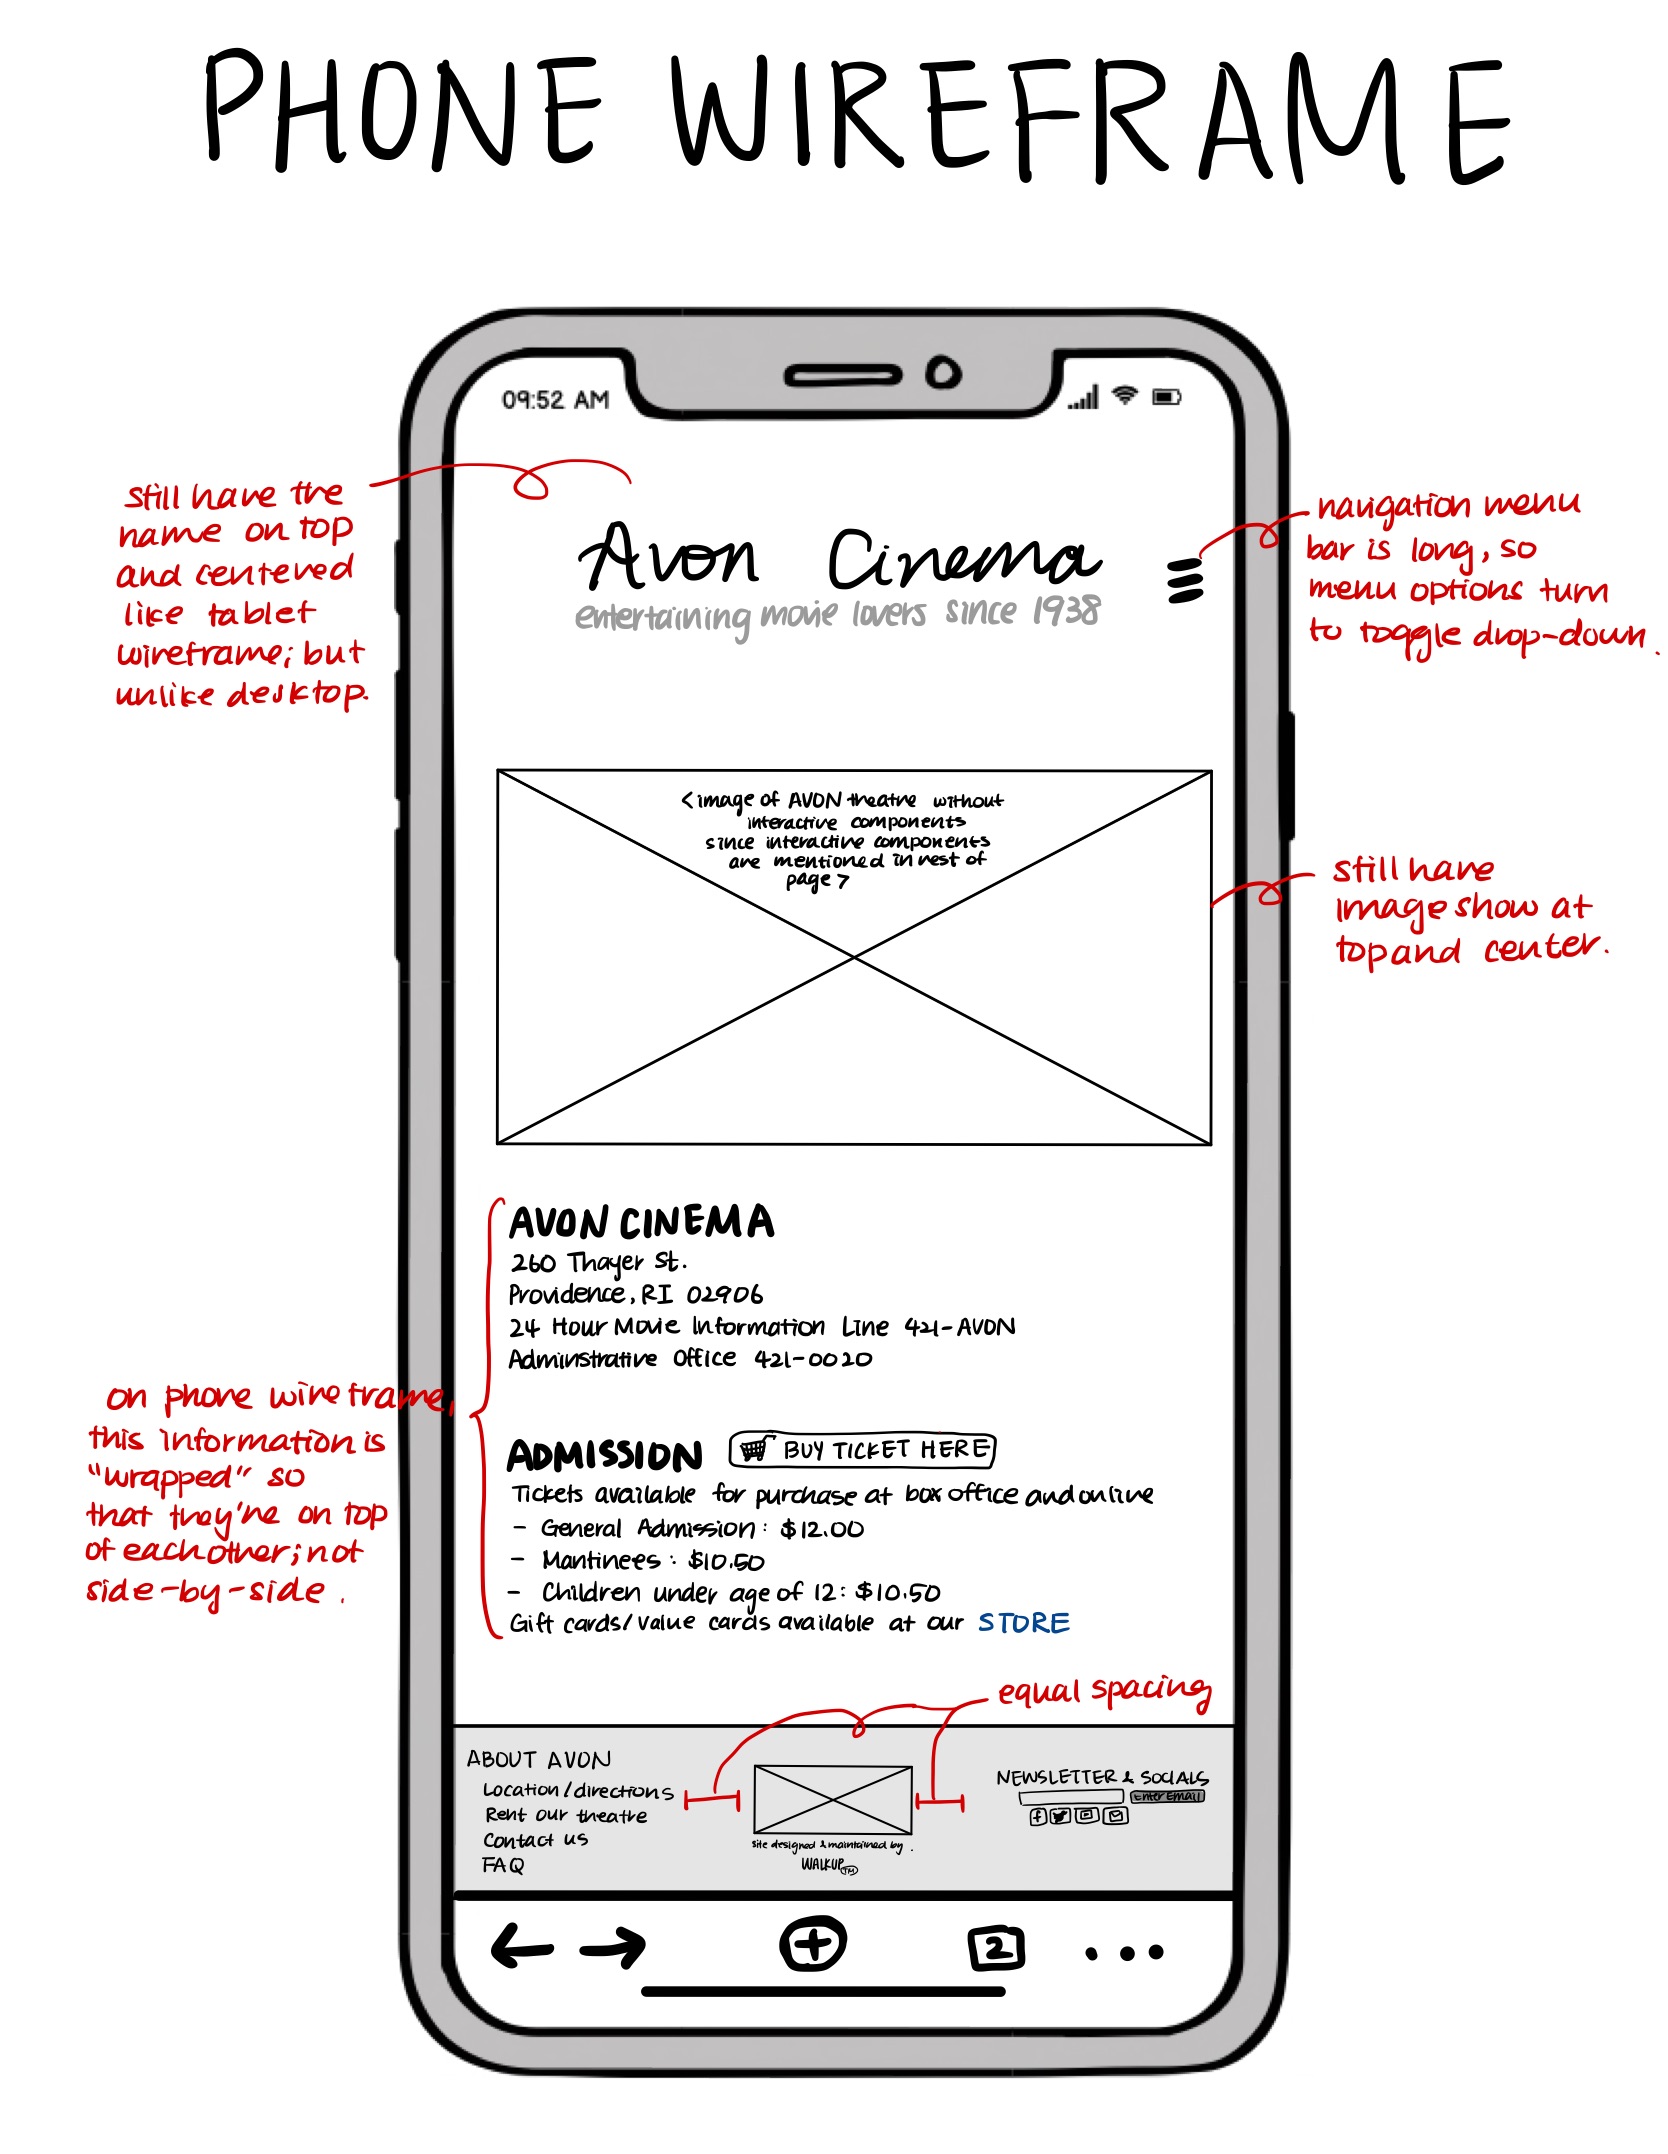 PHONE WIREFRAME
09:52 AM
still have the
name on top
and centered
like tablet
wireframe; but
unlike desktop.
Avon Cinema
entertaining movie lovers since 1938
navigation menu
bar is long, so
menu options turn
to toggle drop-down.
<image of AVON theatre without
interactive components
since interactive components
are mentioned in rest of
page>
still have
image show at
top and center.
AVON CINEMA
260 Thayer St.
Providence, RI 02906
24 Hour Movie Information Line 421-AVON
Adminstrative Office 421-0020
on phone wireframe,
this information is
"wrapped" so
that they're on top
of each other; not
side-by-side.
ADMISSION
BUY TICKET HERE
Tickets available for purchase at box office and online
- General Admission: $12.00
- Mantinees: $10.50
- Children under age of 12: $10.50
Gift cards/value cards available at our STORE
equal spacing
ABOUT AVON
Location/directions
Rent our theatre
Contact us
FAQ
site designed & maintained by
WALKUP TM
NEWSLETTER & SOCIALS
Enter Email
f
2